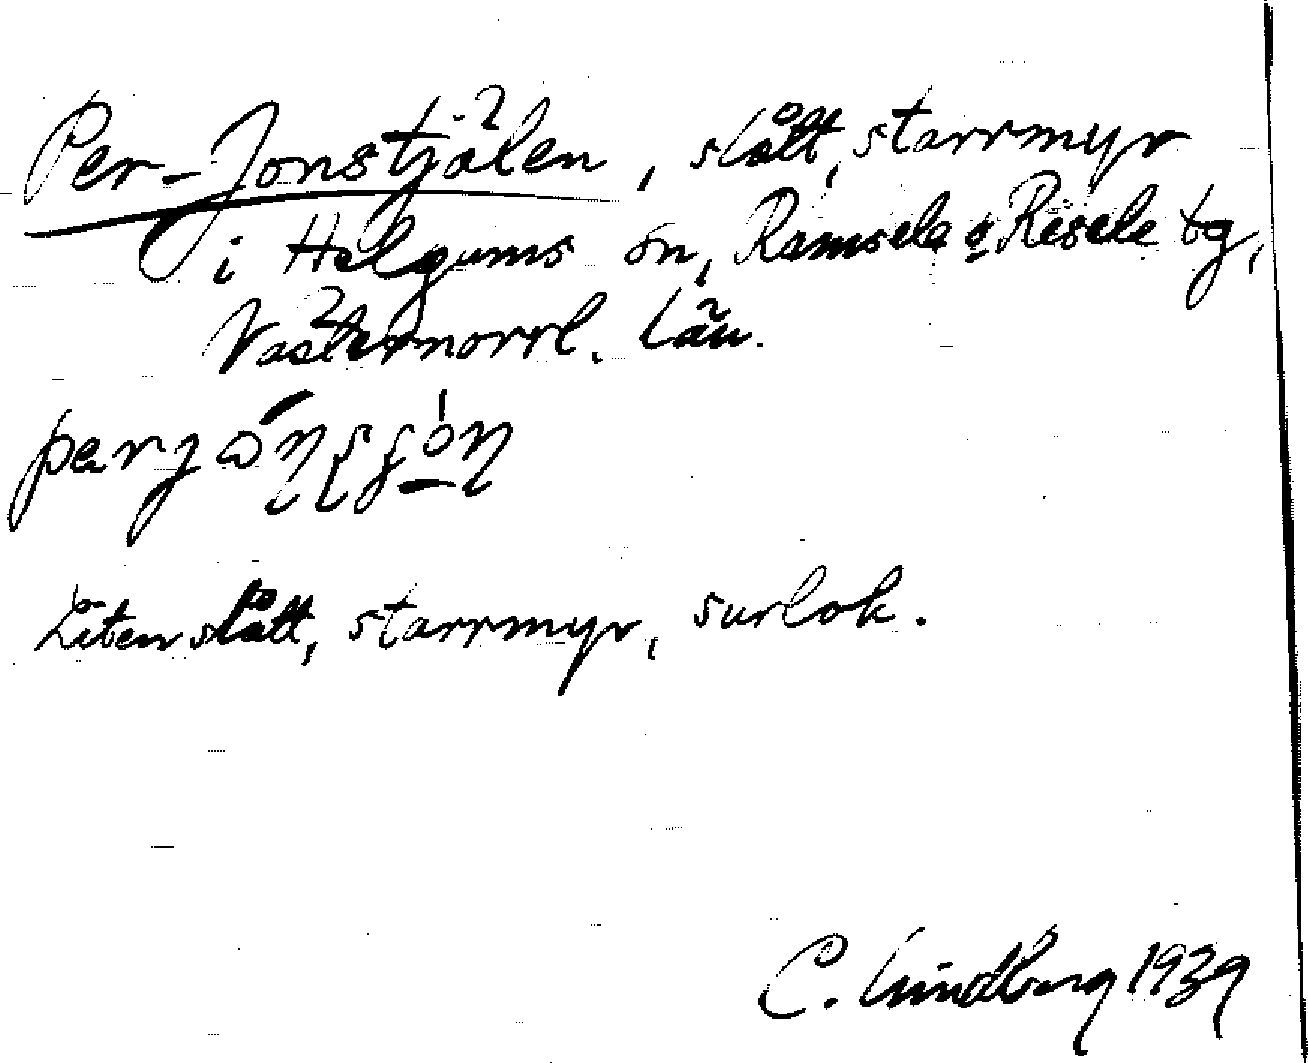 Per-Jonstjälen, slått, starrmyr
i Helgums sn, Ramsele o Resele tg,
Västernorrl. län.
Liten slått, starrmyr, surlok.
C. Lindberg 1939